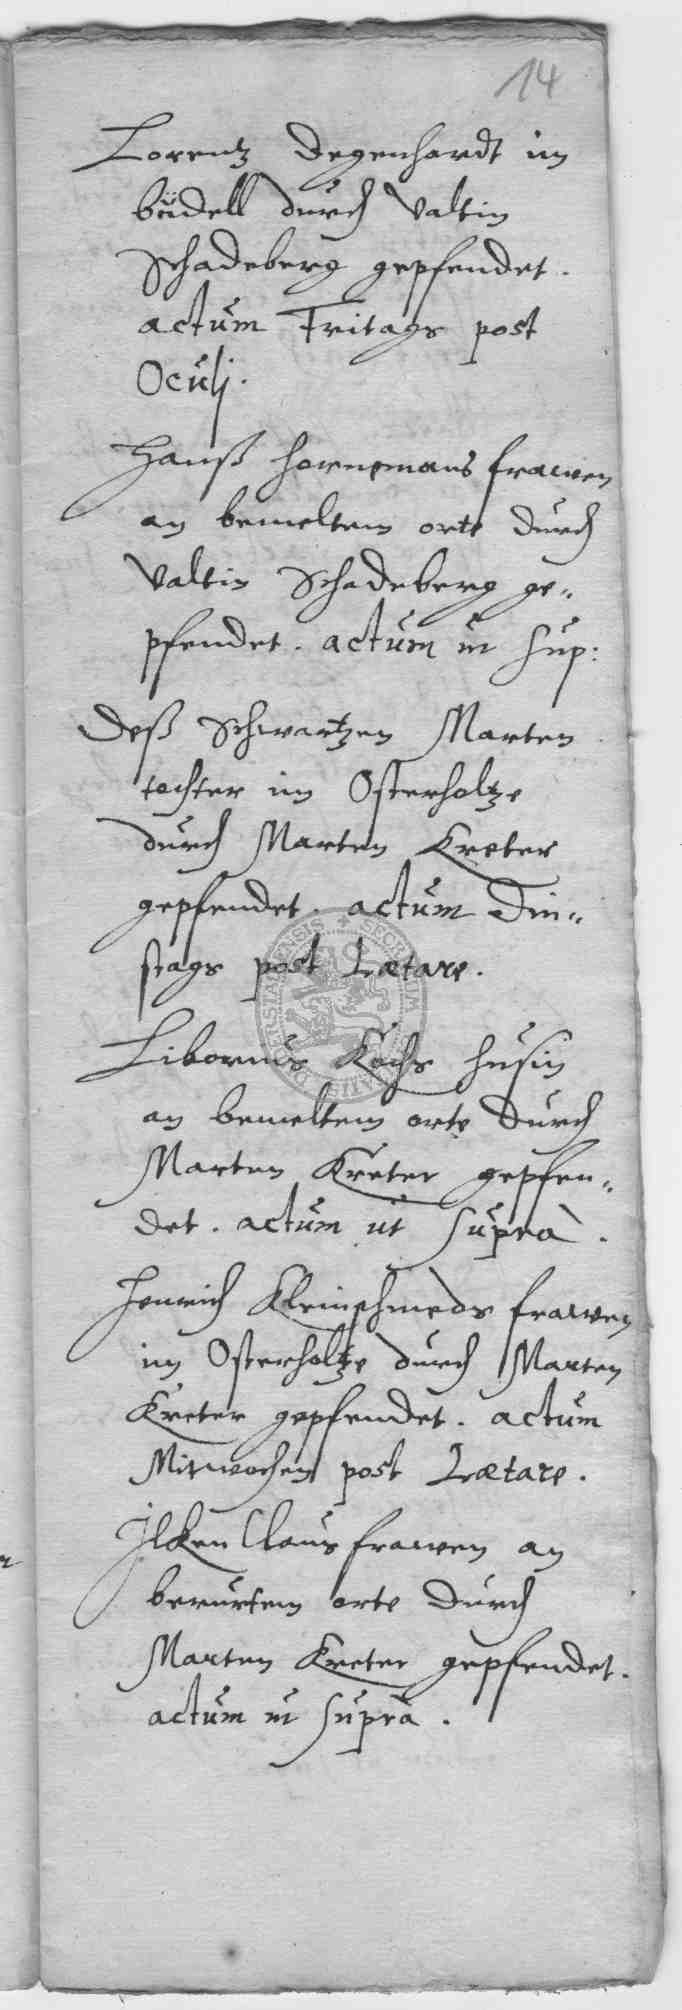 14
Lorentz Degenhardt im
büdell durch Valtin
Schadeberg gepfendet.
actum Fritags post
Oculj.
Hanß Hornemans frawen
an bemeltem orte durch
Valtin Schadeberg ge„
pfendet. actum ut sup:
Deß Schwartzen Marten
tochter im Osterholtze
durch Marten Kreter
gepfendet. actum Din„
stags post Lætare.
Liborius Kochs husin
an bemeltem orte durch
Marten Kreter gepfen„
det. actum ut suprà.
Henrich Kleinschmeds frawen
im Osterholtze durch Marten
Kreter gepfendet. actum
Mitwochen post Lætare.
Ilken Claus frawen an
berurtem orte durch
Marten Kreter gepfendet.
actum ut suprà.